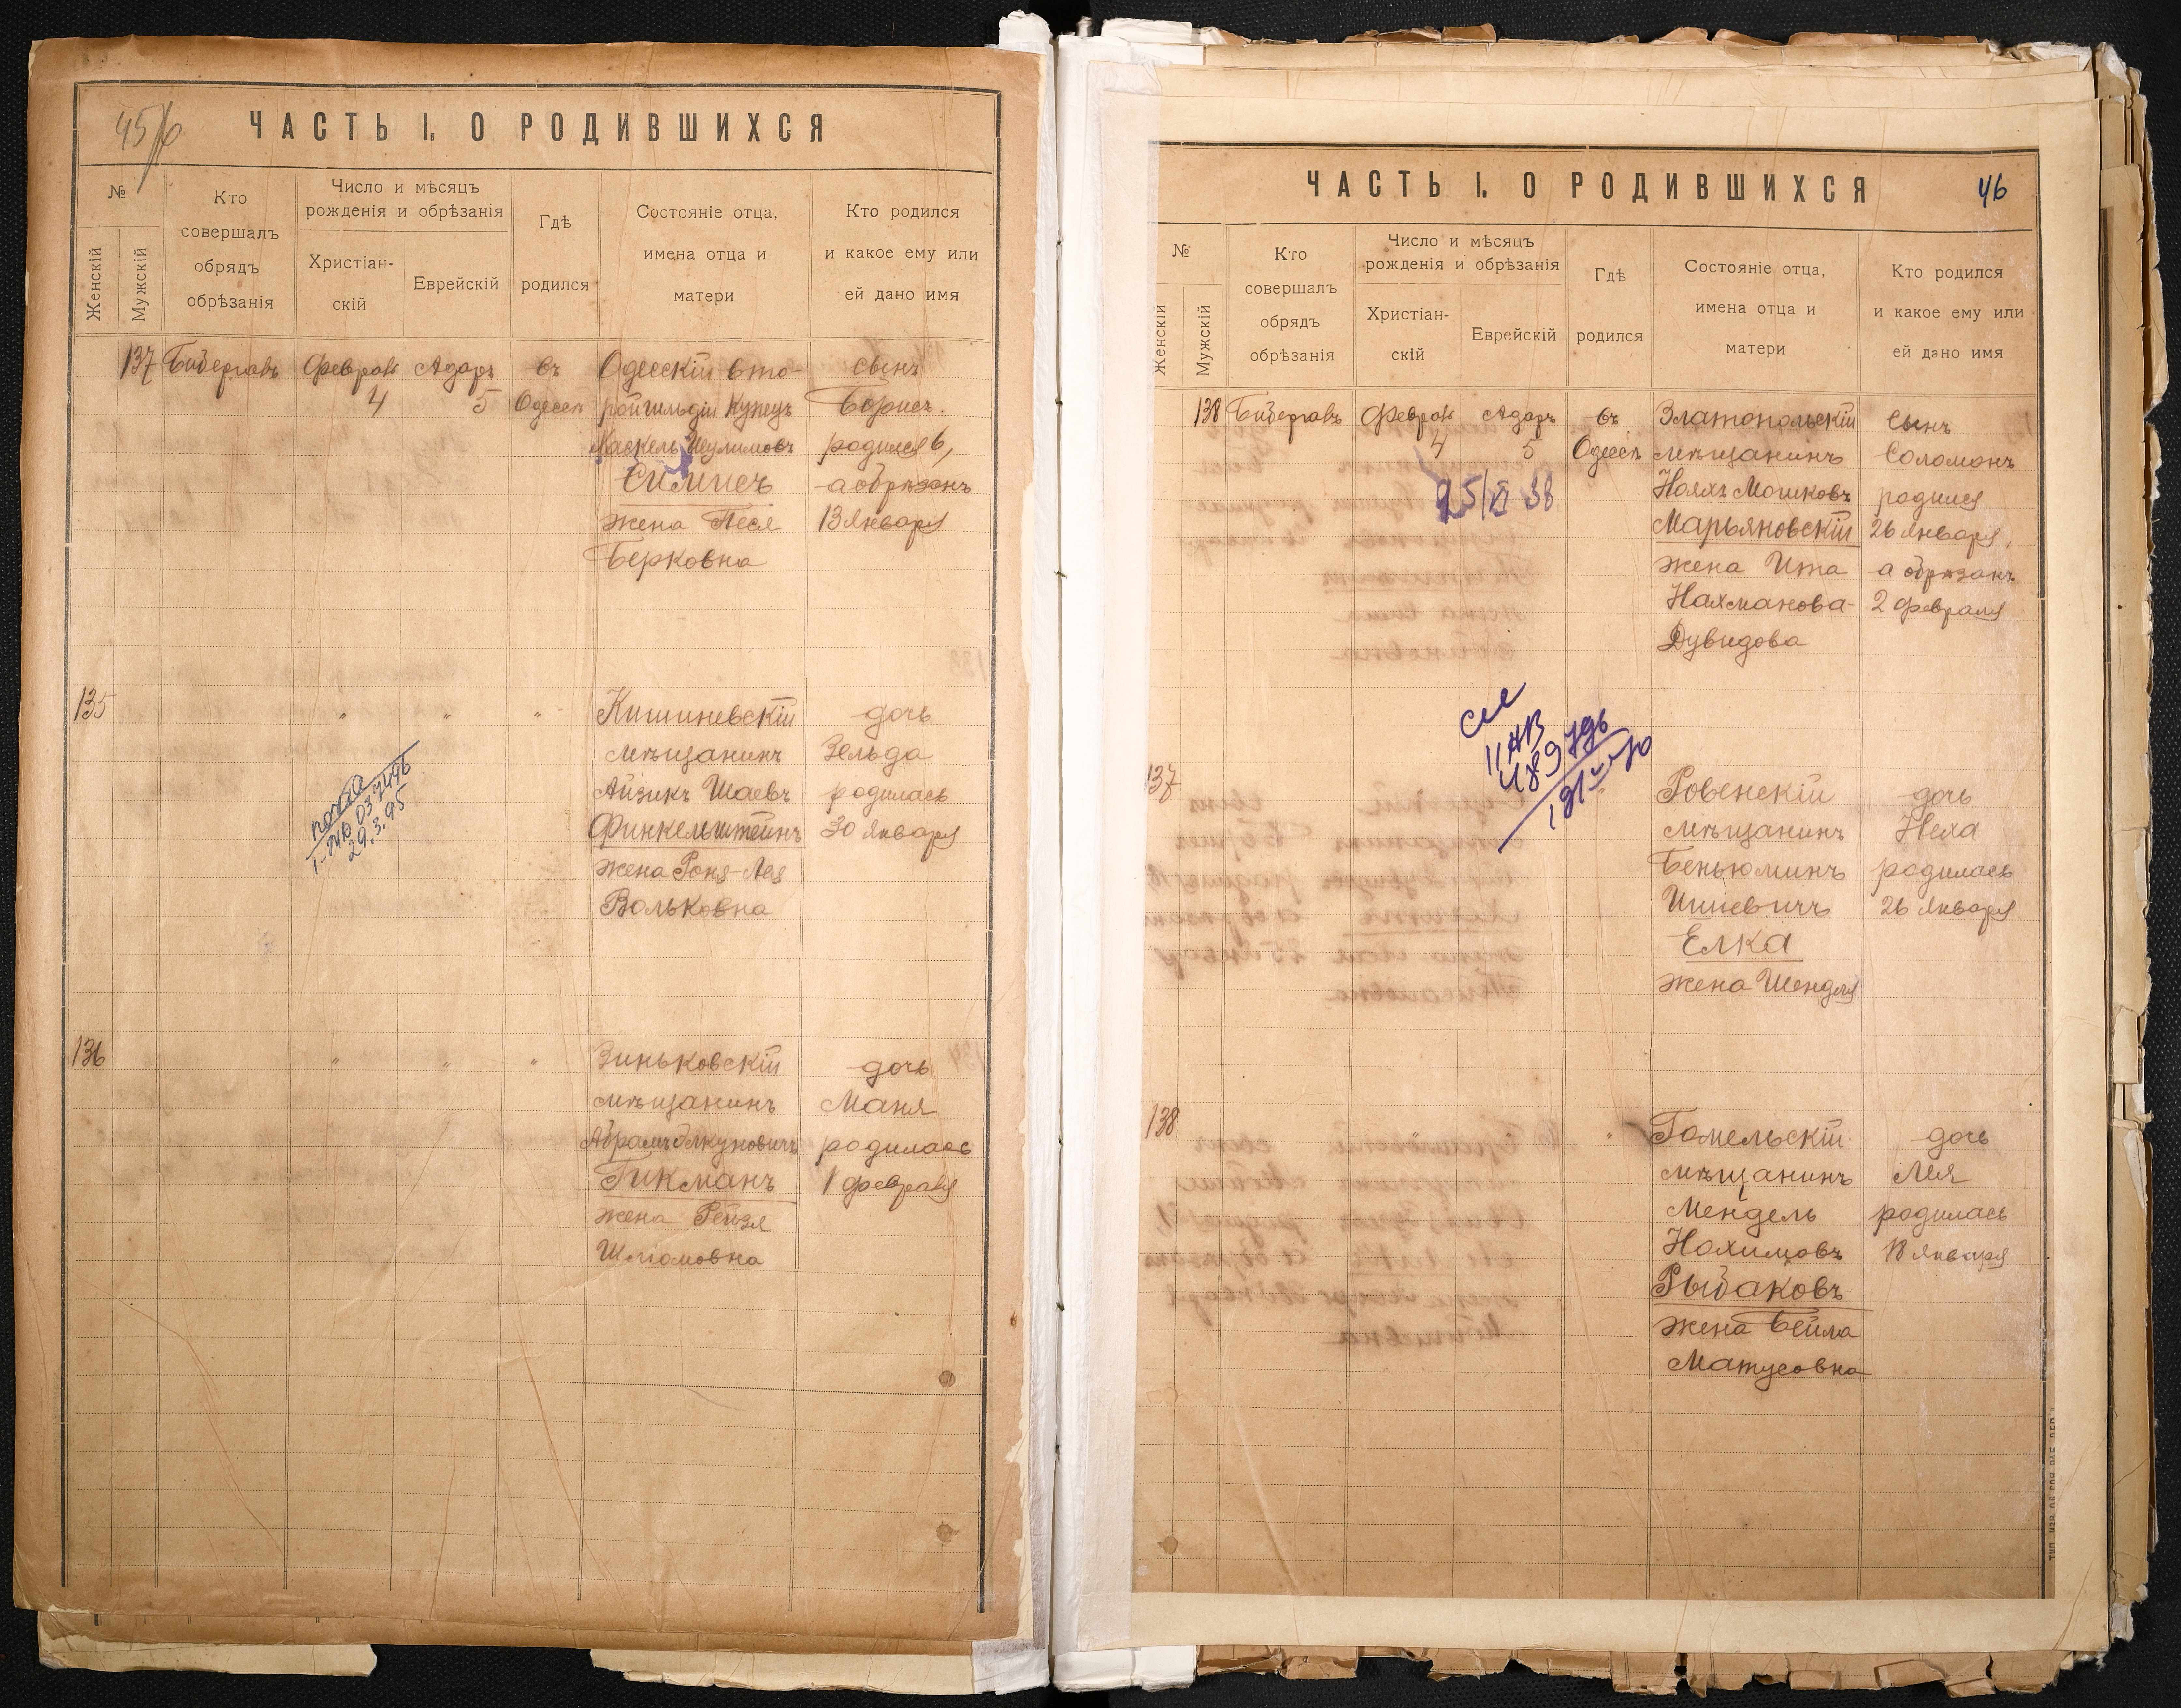 45/6
ЧАСТЬ I. О РОДИВШИХСЯ
№
Женскій
Мужскій
Кто
совершалъ
обрядъ
обрѣзанія
Число и мѣсяцъ
рожденія и обрѣзанія
Христіан-
скій
Еврейскій
Гдѣ
родился
Состояніе отца,
имена отца и
матери
Кто родился
и какое ему или
ей дано имя
137 Бибергалъ Февраль Адаръ въ Одесскій вто- сынъ
4 5 Одессѣ рой гильдіи купецъ Борисъ.
Хаскель родился 6,
а обрѣзанъ
жена Песя 13 Января
Берковна
135 " " " Кишиневскій дочь
мѣщанинъ Зельда
Айзикъ Шаевъ родилась
Финкельштейнъ 30 Января
жена Роня-Лея
Вольковна
29.3.95
136 " " " Зиньковскій дочь
мѣщанинъ Маня
Абрамъ родилась
Гикманъ 1 февраля
жена Рейзя
Шліомовна
ЧАСТЬ I. О РОДИВШИХСЯ 46
№
Женскій
Мужскій
Кто
совершалъ
обрядъ
обрѣзанія
Число и мѣсяцъ
рожденія и обрѣзанія
Христіан-
скій
Еврейскій
Гдѣ
родился
Состояніе отца,
имена отца и
матери
Кто родился
и какое ему или
ей дано имя
138 Бибергалъ Февраль Адаръ въ Златопольскій сынъ
4 5 Одессѣ мѣщанинъ Соломонъ
25/XI 38 Нояхъ Мошковъ родился
Марьяновскій 26 Января,
жена Ита а обрѣзанъ
Нахманова- 2 февраля
Дувидова
137 Ровенскій дочь
мѣщанинъ Неха
Беньюминъ родилась
26 Января
Елка
жена Шендля
138 " " Гомельскій дочь
мѣщанинъ Лея
Мендель родилась
Нохимовъ 18 Января
Рыбаковъ
жена Бейла
Матусовна